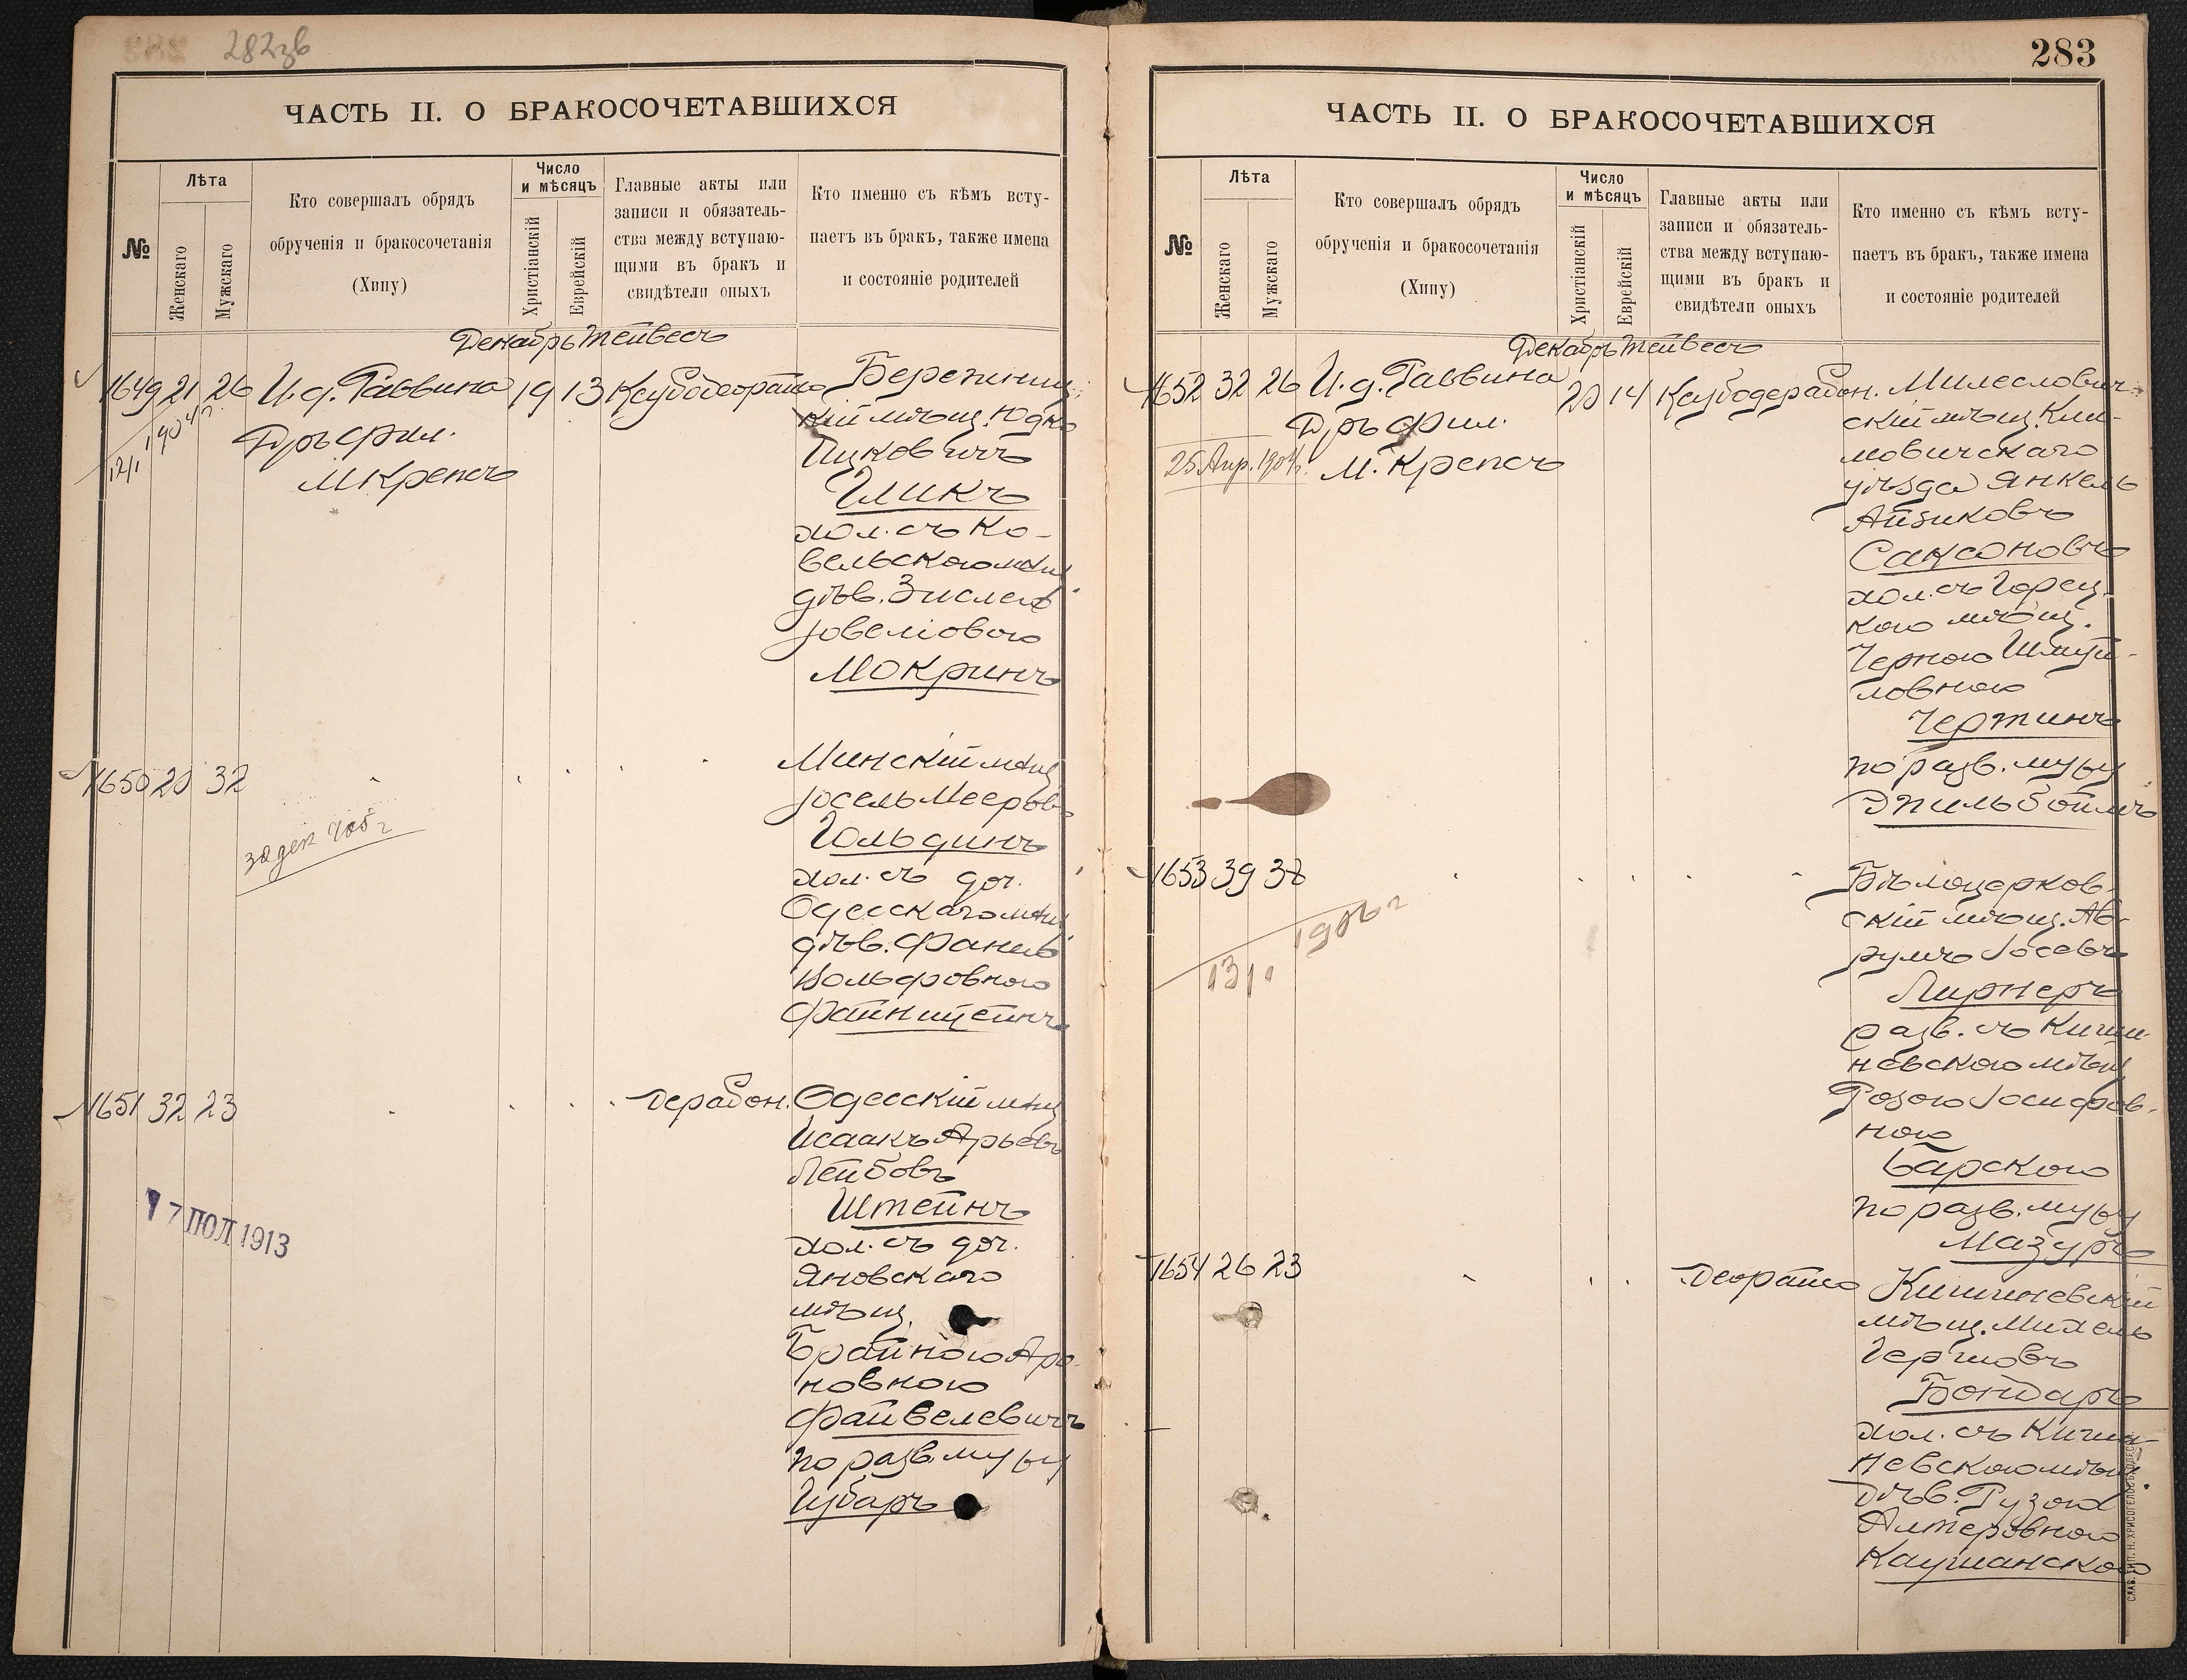 282зв
ЧАСТЬ II. О БРАКОСОЧЕТАВШИХСЯ
№
Лѣта
Женскаго
Мужскаго
Кто совершалъ обрядъ
обрученія и бракосочетанія
(Хипу)
Число
и мѣсяцъ
Христіанскій
Еврейскій
Главные акты или
записи и обязатель-
ства между вступаю-
щими въ бракъ и
свидѣтели оныхъ
Кто именно съ кѣмъ всту-
паетъ въ бракъ, также имена
и состояніе родителей
Декабрь Тейвесъ
1649 21 26 И. д. Раввина 19 13
Д-ръ Фил.
М Крепсъ
кій мѣщ. Юдко
Ицковичъ
Гликъ
хол. съ Ко-
вельскою мѣщ.
дѣв. Зислею
Іовеліовою
Мокринъ
1650 20 32
Минскій мѣщ
Іосель Мееровъ
Гольдинъ
хол. съ доч.
Одесскаго мѣщ
дѣв. Фанею
Вольфовною
Файнштейнъ
1651 32 23 дерабон. Одесскій мѣщ
Исаакъ Арьевъ
Лейбовъ
Штейнъ
хол. съ доч.
Яновскаго
мѣщ.
Брайною Аро-
новною
Файвелевичъ
по разв. мужу
Губаръ
7 ПОЛ 1913
283
ЧАСТЬ II. О БРАКОСОЧЕТАВШИХСЯ
№
Лѣта
Женскаго
Мужскаго
Кто совершалъ обрядъ
обрученія и бракосочетанія
(Хипу)
Число
и мѣсяцъ
Христіанскій
Еврейскій
Главные акты или
записи и обязатель-
ства между вступаю-
щими въ бракъ и
свидѣтели оныхъ
Кто именно съ кѣмъ всту-
паетъ въ бракъ, также имена
и состояніе родителей
Декабрь Тейвесъ
1652 32 26 И. д. Раввина 20 14 Милеслович-
Д-ръ Фил.
М. Крепсъ
25 Апр. 1904 г.
скій мѣщ. Кли-
мовичскаго
уѣзда Янкель
Айзиковъ
Саксоновъ
хол. съ Горец.
кою мѣщ.
Черною Шмуй-
ловною
Чертинъ
по разв. мужу
Эпильбоймъ
1653 39 38
1906 г
Бѣлоцерков-
скій мѣщ. Ав-
румъ Іосевъ
Лирнеръ
разв. съ Киши-
невскою мѣщ
Розою Іосифов-
ною
Барскою
по разв. мужу
Мазуръ
1654 26 23 Кишиневскій
мѣщ. Михель
Гершовъ
Бондаръ
хол. съ Киши-
невскою мѣщ.
дѣв. Рузою
Алтеровною
Каушанскою